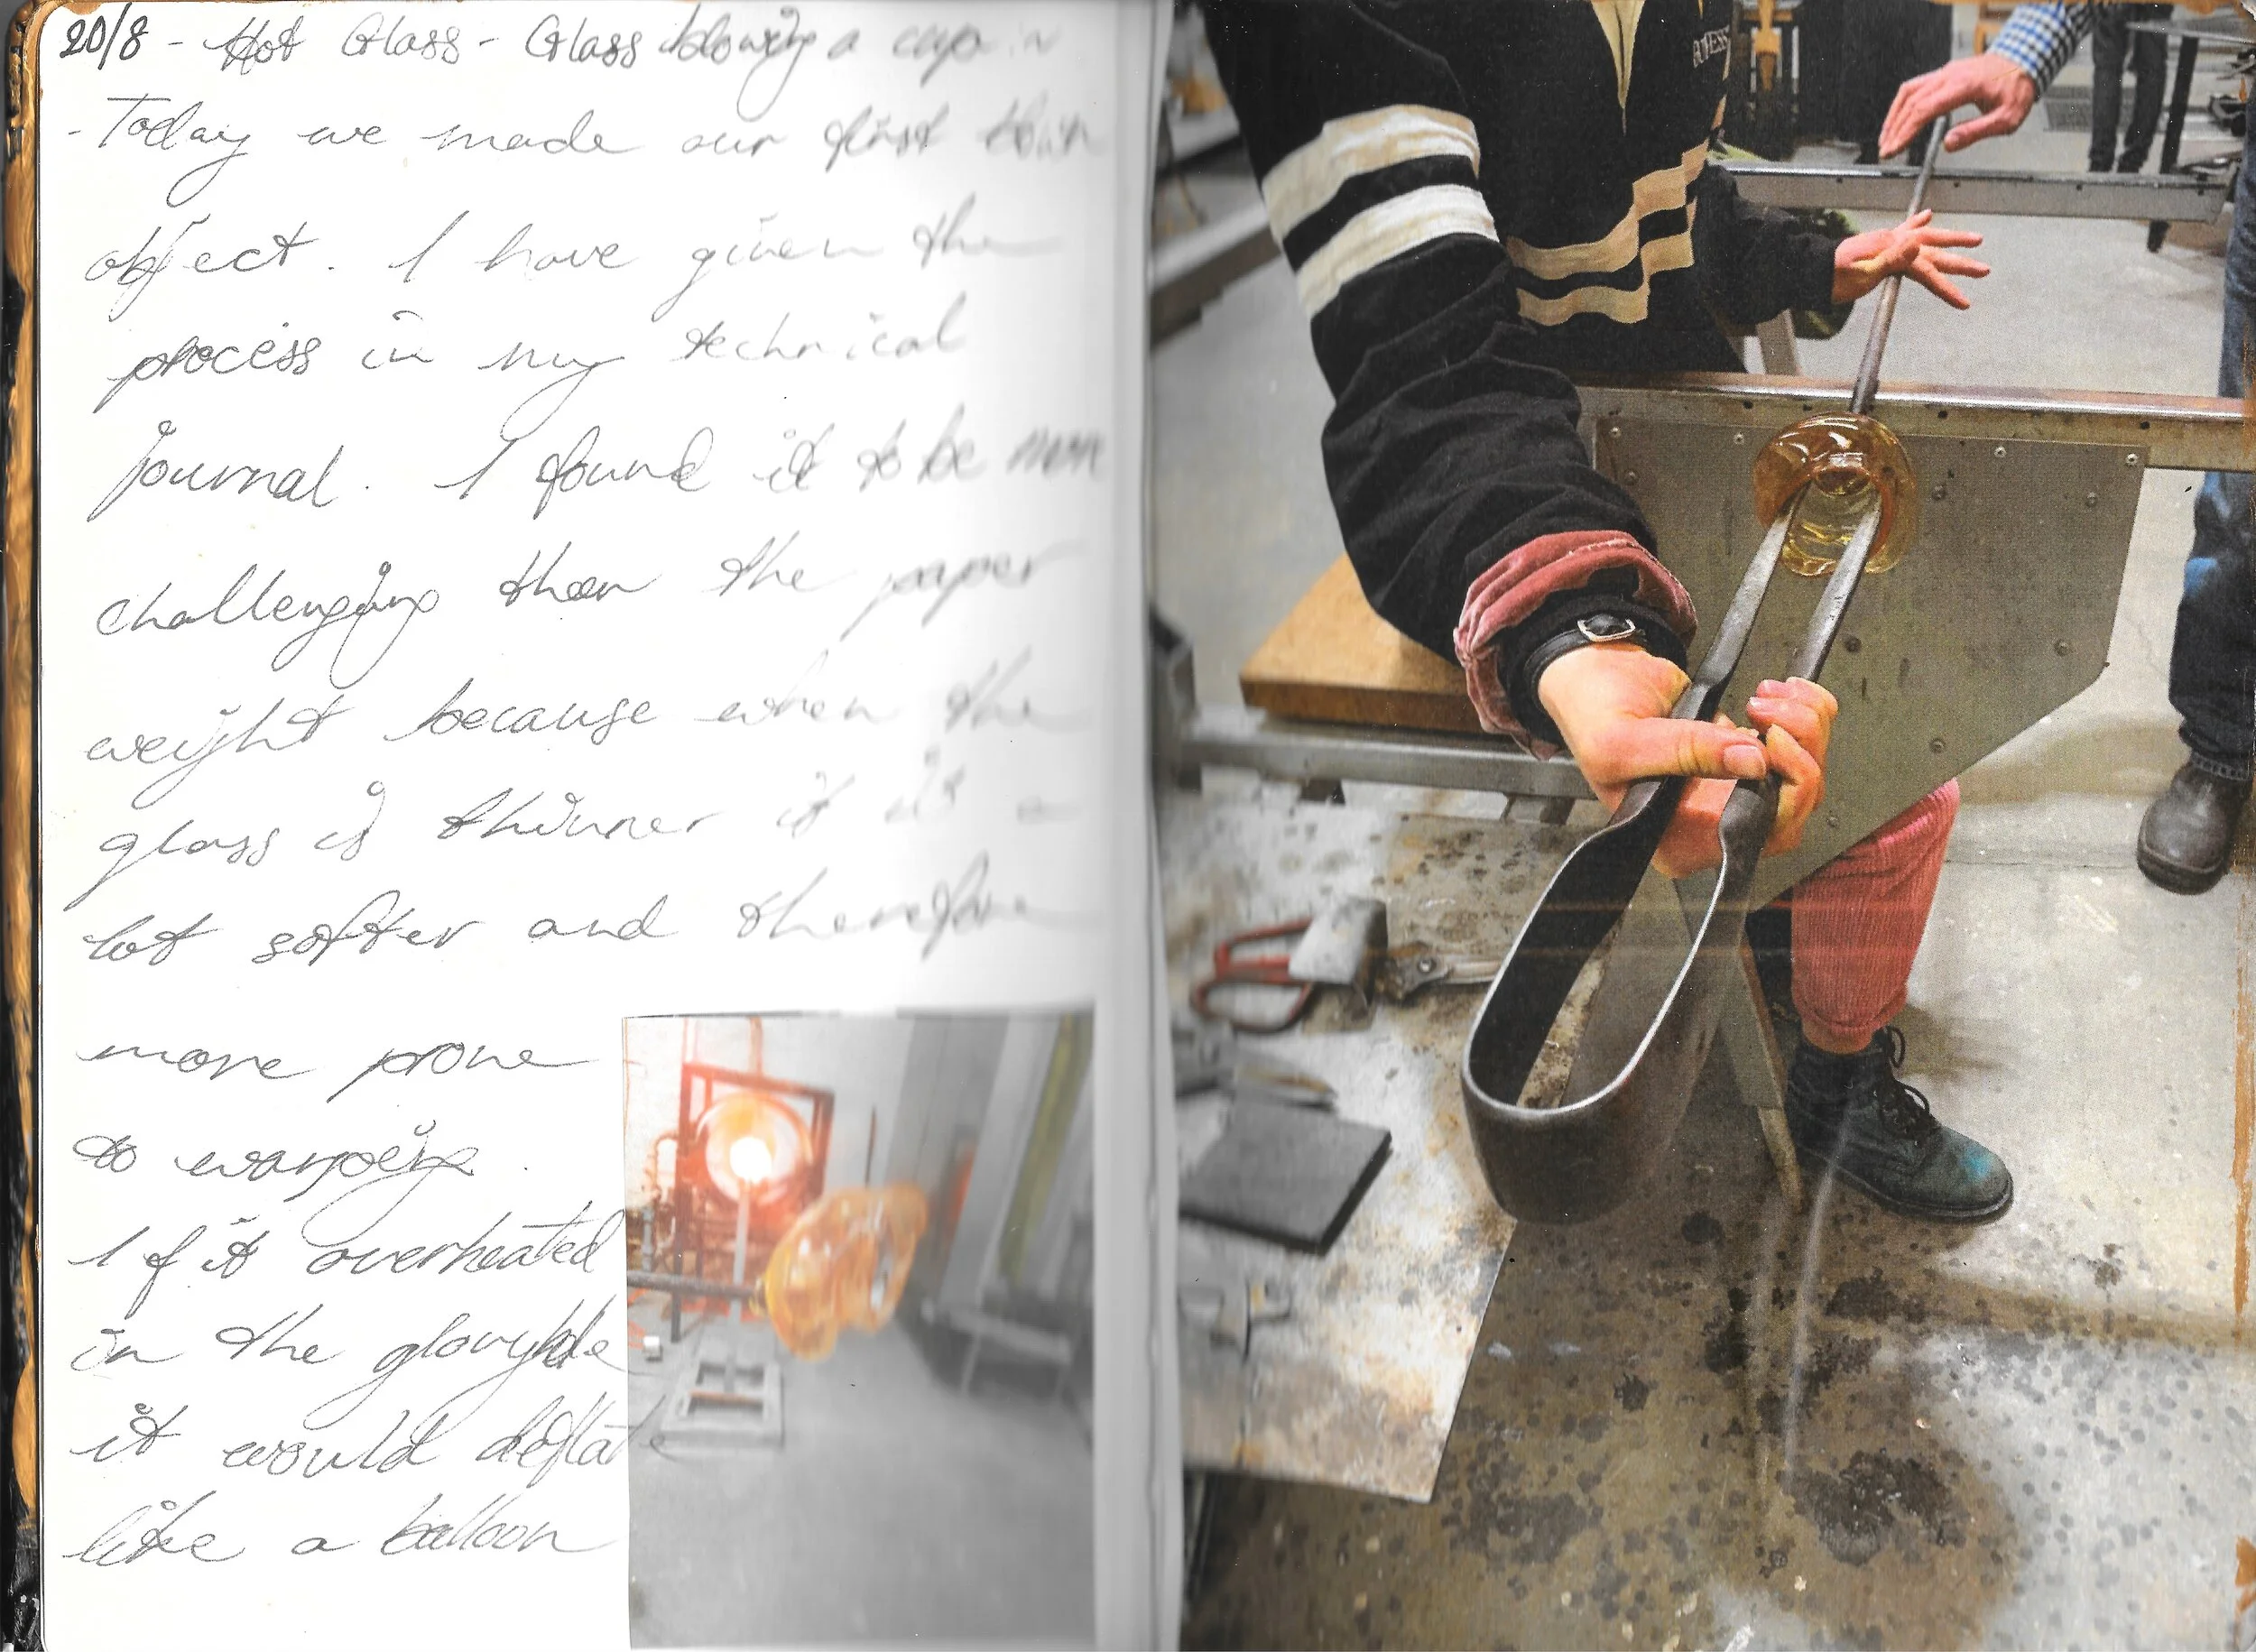 20/8 - Hot Glass - Glass blowing a cup
- Today we made our first
object. I have given the
process in my technical
journal. I found it to be more
challenging than the paper
weight because when the
glass is thinner it is a
lot softer and therefore
more prone
to warping.
If it overheated
in the gloryhole
it would deflate
like a balloon